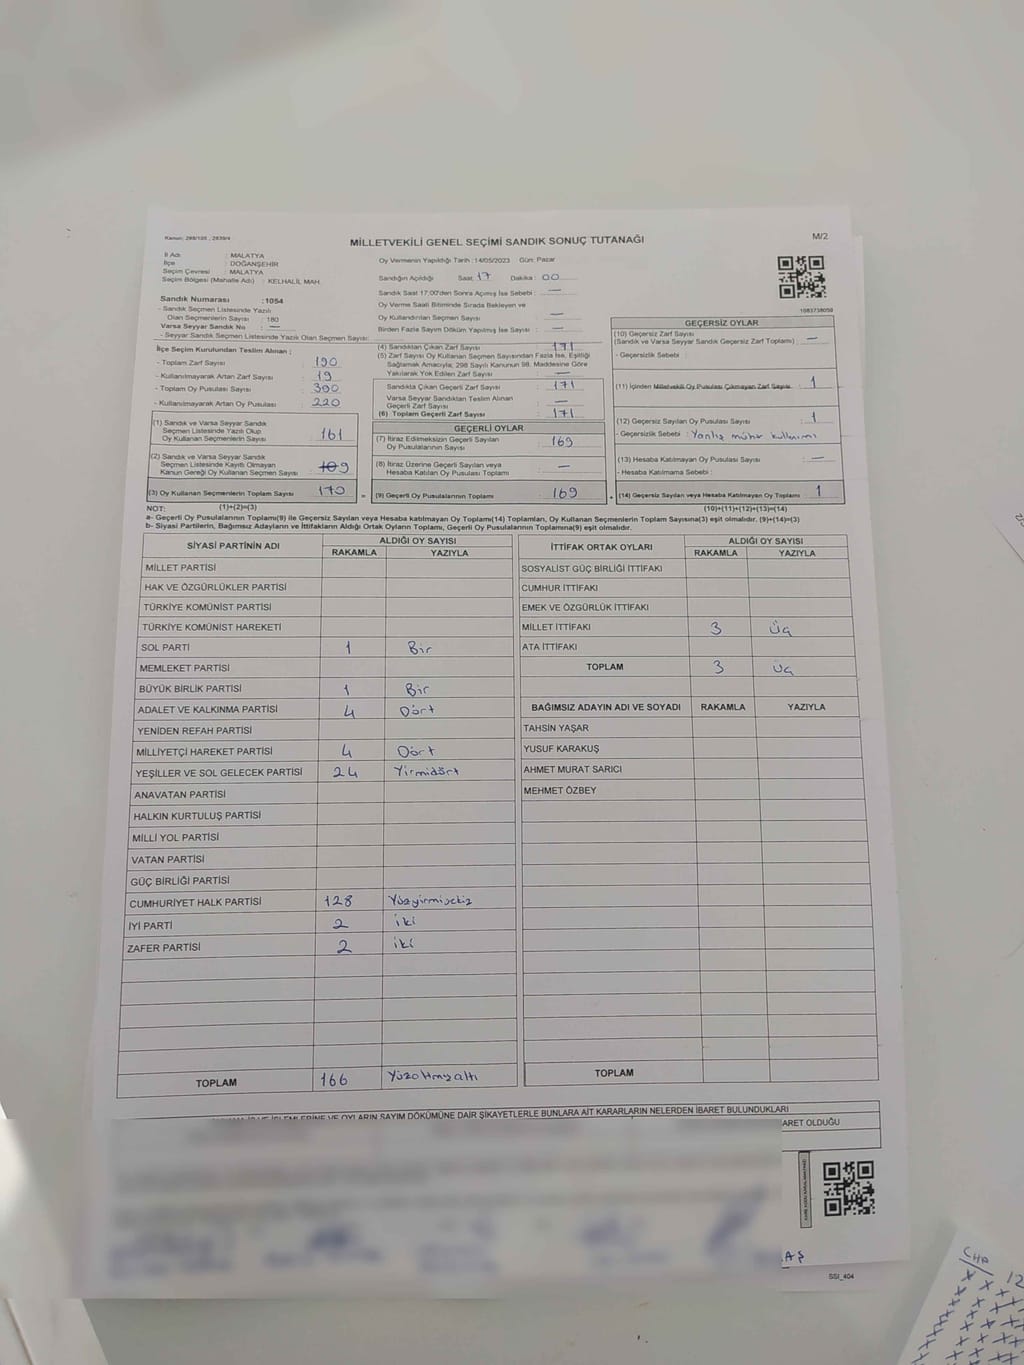 Kanun: 298/105 , 2839/4
MİLLETVEKİLİ GENEL SEÇİMİ SANDIK SONUÇ TUTANAĞI
M/2
İl Adı : MALATYA
İlçe : DOĞANŞEHİR
Seçim Çevresi : MALATYA
Seçim Bölgesi (Mahalle Adı) : KELHALİL MAH.
Sandık Numarası : 1054
- Sandık Seçmen Listesinde Yazılı
Olan Seçmenlerin Sayısı : 180
Varsa Seyyar Sandık No : —
- Seyyar Sandık Seçmen Listesinde Yazılı Olan Seçmen Sayısı:
Oy Vermenin Yapıldığı Tarih : 14/05/2023 Gün: Pazar
Sandığın Açıldığı Saat: 17 Dakika : 00
Sandık Saat 17:00'den Sonra Açmış İse Sebebi : —
Oy Verme Saati Bitiminde Sırada Bekleyen ve
Oy Kullandırılan Seçmen Sayısı : —
Birden Fazla Sayım Döküm Yapılmış İse Sayısı : —
1083738059
İlçe Seçim Kurulundan Teslim Alınan ;
- Toplam Zarf Sayısı : 190
- Kullanılmayarak Artan Zarf Sayısı : 19
- Toplam Oy Pusulası Sayısı : 390
- Kullanılmayarak Artan Oy Pusulası : 220
(1) Sandık ve Varsa Seyyar Sandık
Seçmen Listesinde Yazılı Olup
Oy Kullanan Seçmenlerin Sayısı : 161
(2) Sandık ve Varsa Seyyar Sandık
Seçmen Listesinde Kayıtlı Olmayan
Kanun Gereği Oy Kullanan Seçmen Sayısı : 9
(3) Oy Kullanan Seçmenlerin Toplam Sayısı : 170
(4) Sandıktan Çıkan Zarf Sayısı : 171
(5) Zarf Sayısı Oy Kullanan Seçmen Sayısından Fazla İse, Eşitliği
Sağlamak Amacıyla, 298 Sayılı Kanunun 98. Maddesine Göre
Yakılarak Yok Edilen Zarf Sayısı : —
Sandıkta Çıkan Geçerli Zarf Sayısı : 171
Varsa Seyyar Sandıktan Teslim Alınan
Geçerli Zarf Sayısı : —
(6) Toplam Geçerli Zarf Sayısı : 171
GEÇERLİ OYLAR
(7) İtiraz Edilmeksizin Geçerli Sayılan
Oy Pusulalarının Sayısı : 169
(8) İtiraz Üzerine Geçerli Sayılan veya
Hesaba Katılan Oy Pusulası Toplamı : —
= (9) Geçerli Oy Pusulalarının Toplamı : 169 +
GEÇERSİZ OYLAR
(10) Geçersiz Zarf Sayısı
(Sandık ve Varsa Seyyar Sandık Geçersiz Zarf Toplamı) : —
- Geçersizlik Sebebi :
(11) İçinden Milletvekili Oy Pusulası Çıkmayan Zarf Sayısı : 1
(12) Geçersiz Sayılan Oy Pusulası Sayısı : 1
- Geçersizlik Sebebi : Yanlış mühür kullanımı
(13) Hesaba Katılmayan Oy Pusulası Sayısı : —
- Hesaba Katılmama Sebebi :
(14) Geçersiz Sayılan veya Hesaba Katılmayan Oy Toplamı : 1
NOT: (1)+(2)=(3) (10)+(11)+(12)+(13)=(14)
a- Geçerli Oy Pusulalarının Toplamı(9) ile Geçersiz Sayılan veya Hesaba katılmayan Oy Toplamı(14) Toplamları, Oy Kullanan Seçmenlerin Toplam Sayısına(3) eşit olmalıdır. (9)+(14)=(3)
b- Siyasi Partilerin, Bağımsız Adayların ve İttifakların Aldığı Ortak Oyların Toplamı, Geçerli Oy Pusulalarının Toplamına(9) eşit olmalıdır.
SİYASİ PARTİNİN ADI ALDIĞI OY SAYISI
RAKAMLA YAZIYLA
MİLLET PARTİSİ
HAK VE ÖZGÜRLÜKLER PARTİSİ
TÜRKİYE KOMÜNİST PARTİSİ
TÜRKİYE KOMÜNİST HAREKETİ
SOL PARTİ 1 Bir
MEMLEKET PARTİSİ
BÜYÜK BİRLİK PARTİSİ 1 Bir
ADALET VE KALKINMA PARTİSİ 4 Dört
YENİDEN REFAH PARTİSİ
MİLLİYETÇİ HAREKET PARTİSİ 4 Dört
YEŞİLLER VE SOL GELECEK PARTİSİ 24 Yirmidört
ANAVATAN PARTİSİ
HALKIN KURTULUŞ PARTİSİ
MİLLİ YOL PARTİSİ
VATAN PARTİSİ
GÜÇ BİRLİĞİ PARTİSİ
CUMHURİYET HALK PARTİSİ 128 Yüzyirmisekiz
İYİ PARTİ 2 iki
ZAFER PARTİSİ 2 iki
TOPLAM 166 Yüzaltmışaltı
İTTİFAK ORTAK OYLARI ALDIĞI OY SAYISI
RAKAMLA YAZIYLA
SOSYALİST GÜÇ BİRLİĞİ İTTİFAKI
CUMHUR İTTİFAKI
EMEK VE ÖZGÜRLÜK İTTİFAKI
MİLLET İTTİFAKI 3 Üç
ATA İTTİFAKI
TOPLAM 3 Üç
BAĞIMSIZ ADAYIN ADI VE SOYADI RAKAMLA YAZIYLA
TAHSİN YAŞAR
YUSUF KARAKUŞ
AHMET MURAT SARICI
MEHMET ÖZBEY
TOPLAM
OYLARIN SAYIM DÖKÜMÜNE DAİR ŞİKAYETLERLE BUNLARA AİT KARARLARIN NELERDEN İBARET BULUNDUKLARI
ARET OLDUĞU
AŞ
SSİ_404
CHP
12